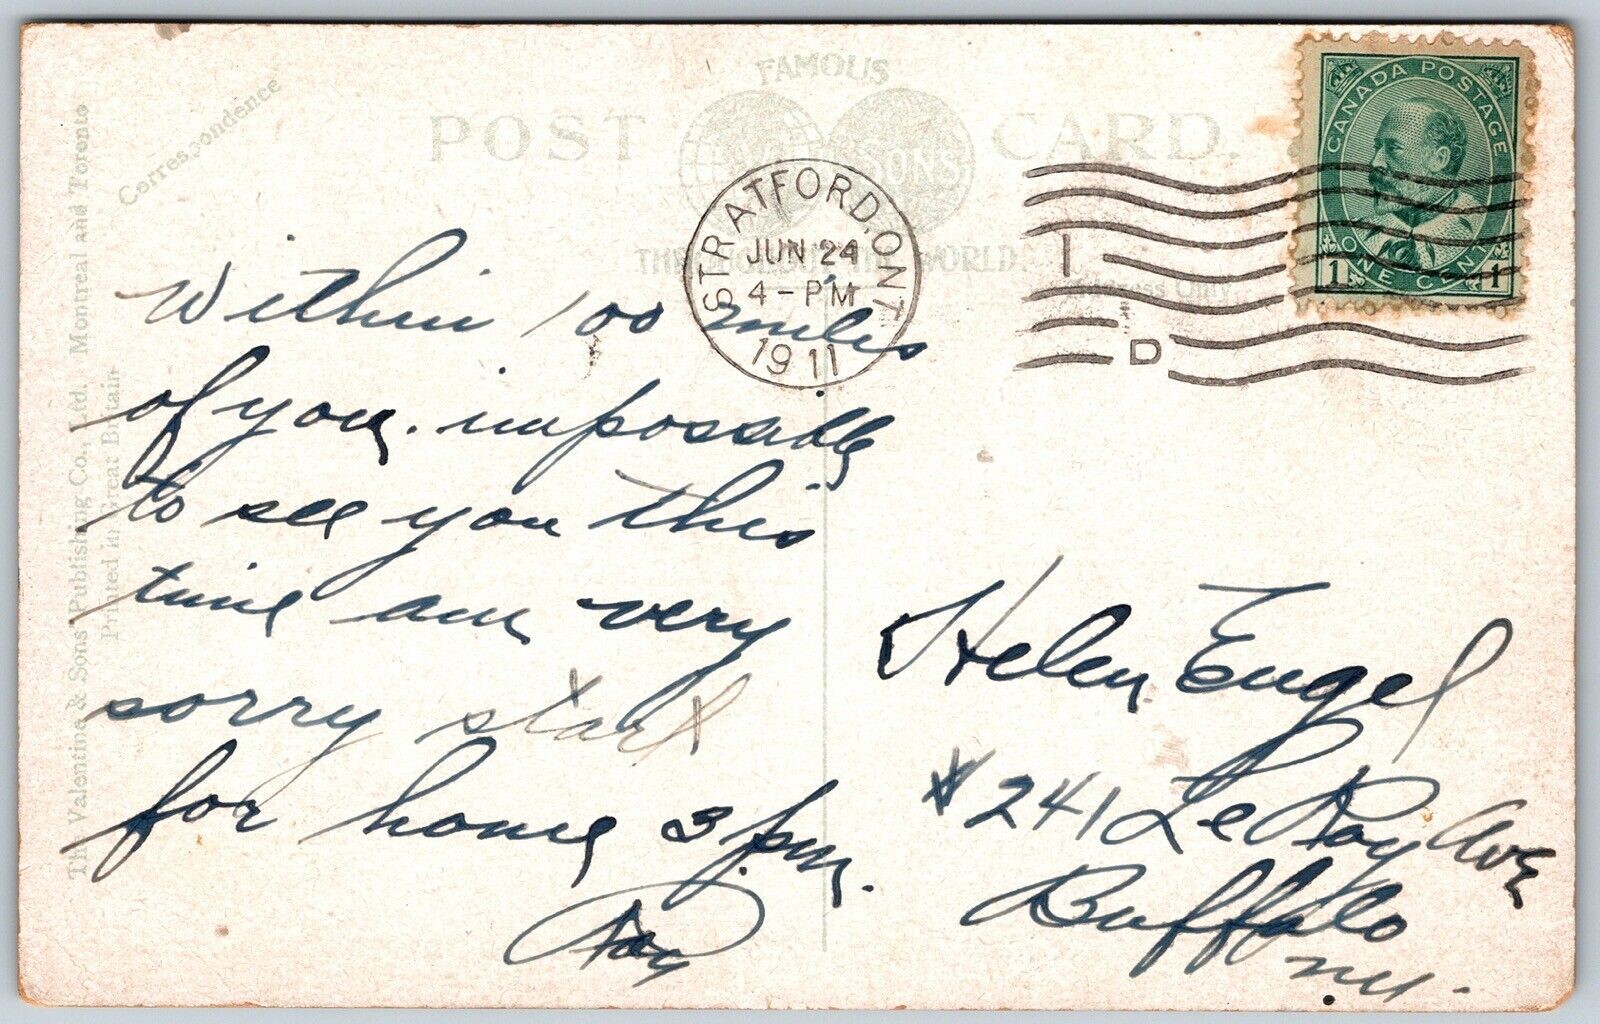 FAMOUS
POST CARD.
SONS
THROUGHOUT THE WORLD
Correspondence
Address Only
The Valentine & Sons Publishing Co., Ltd. Montreal and Toronto
Printed in Great Britain
STRATFORD, ONT
JUN 24
4-PM
1911
I
D
CANADA POSTAGE
1 ONE CENT 1
Within 100 miles
of you. impossible
to see you this
time am very
sorry start
for home 3 p.m.
Ray
Helen Engel
# 241 LeRoy Ave
Buffalo
N.Y.